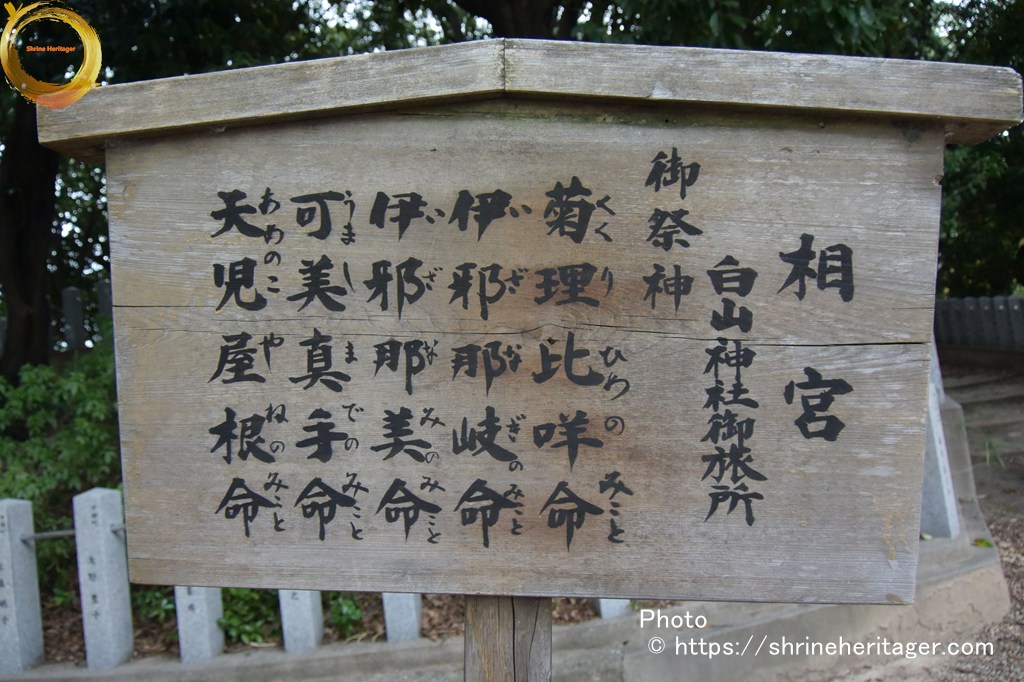 Shrine Heritager
相宮
白山神社御旅所
御祭神
菊理比咩命
くくりひめのみこと
伊邪那岐命
いざなぎのみこと
伊邪那美命
いざなみのみこと
可美真手命
うましまでのみこと
天児屋根命
あめのこやねのみこと
Photo
© https://shrineheritager.com